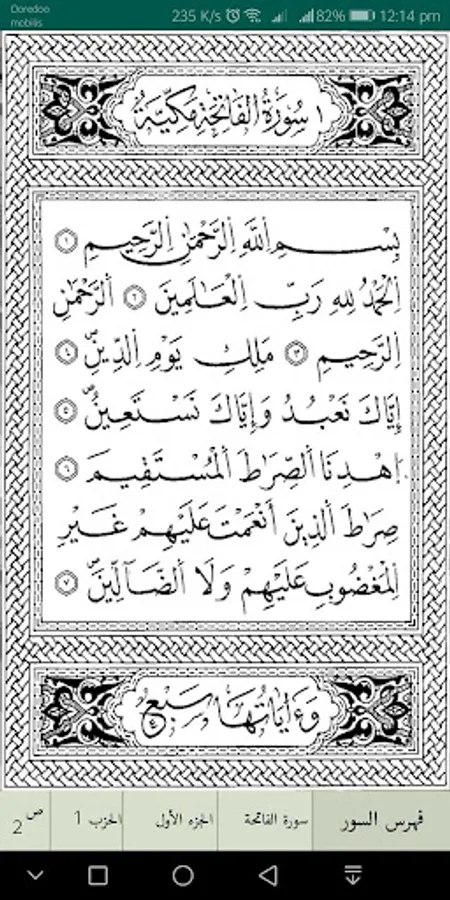 Ooredoo
mobilis
235 K/s 82% 12:14 pm
١ سُورَةُ الفَاتِحَةِ مَكِّيَّةٌ
بِسْمِ اِللَّهِ اِلرَّحْمَٰنِ اِلرَّحِيمِ ١
اِلْحَمْدُ لِلهِ رَبِّ اِلْعَٰلَمِينَ ٢ اَلرَّحْمَٰنِ
اِلرَّحِيمِ ٣ مَلِكِ يَوْمِ اِلدِّينِ ٤
إِيَّاكَ نَعْبُدُ وَإِيَّاكَ نَسْتَعِينُ ٥
اِهْدِنَا اَلصِّرَٰطَ اَلْمُسْتَقِيمَ ٦
صِرَٰطَ اَلذِينَ أَنْعَمْتَ عَلَيْهِمْ غَيْرِ
اِلْمَغْضُوبِ عَلَيْهِمْ وَلَا اَلضَّآلِّينَ ٧
وَءَايَاتُهَا سَبْعٌ
فهرس السور
سورة الفاتحة
الجزء الأول
الحزب 1
ص 2